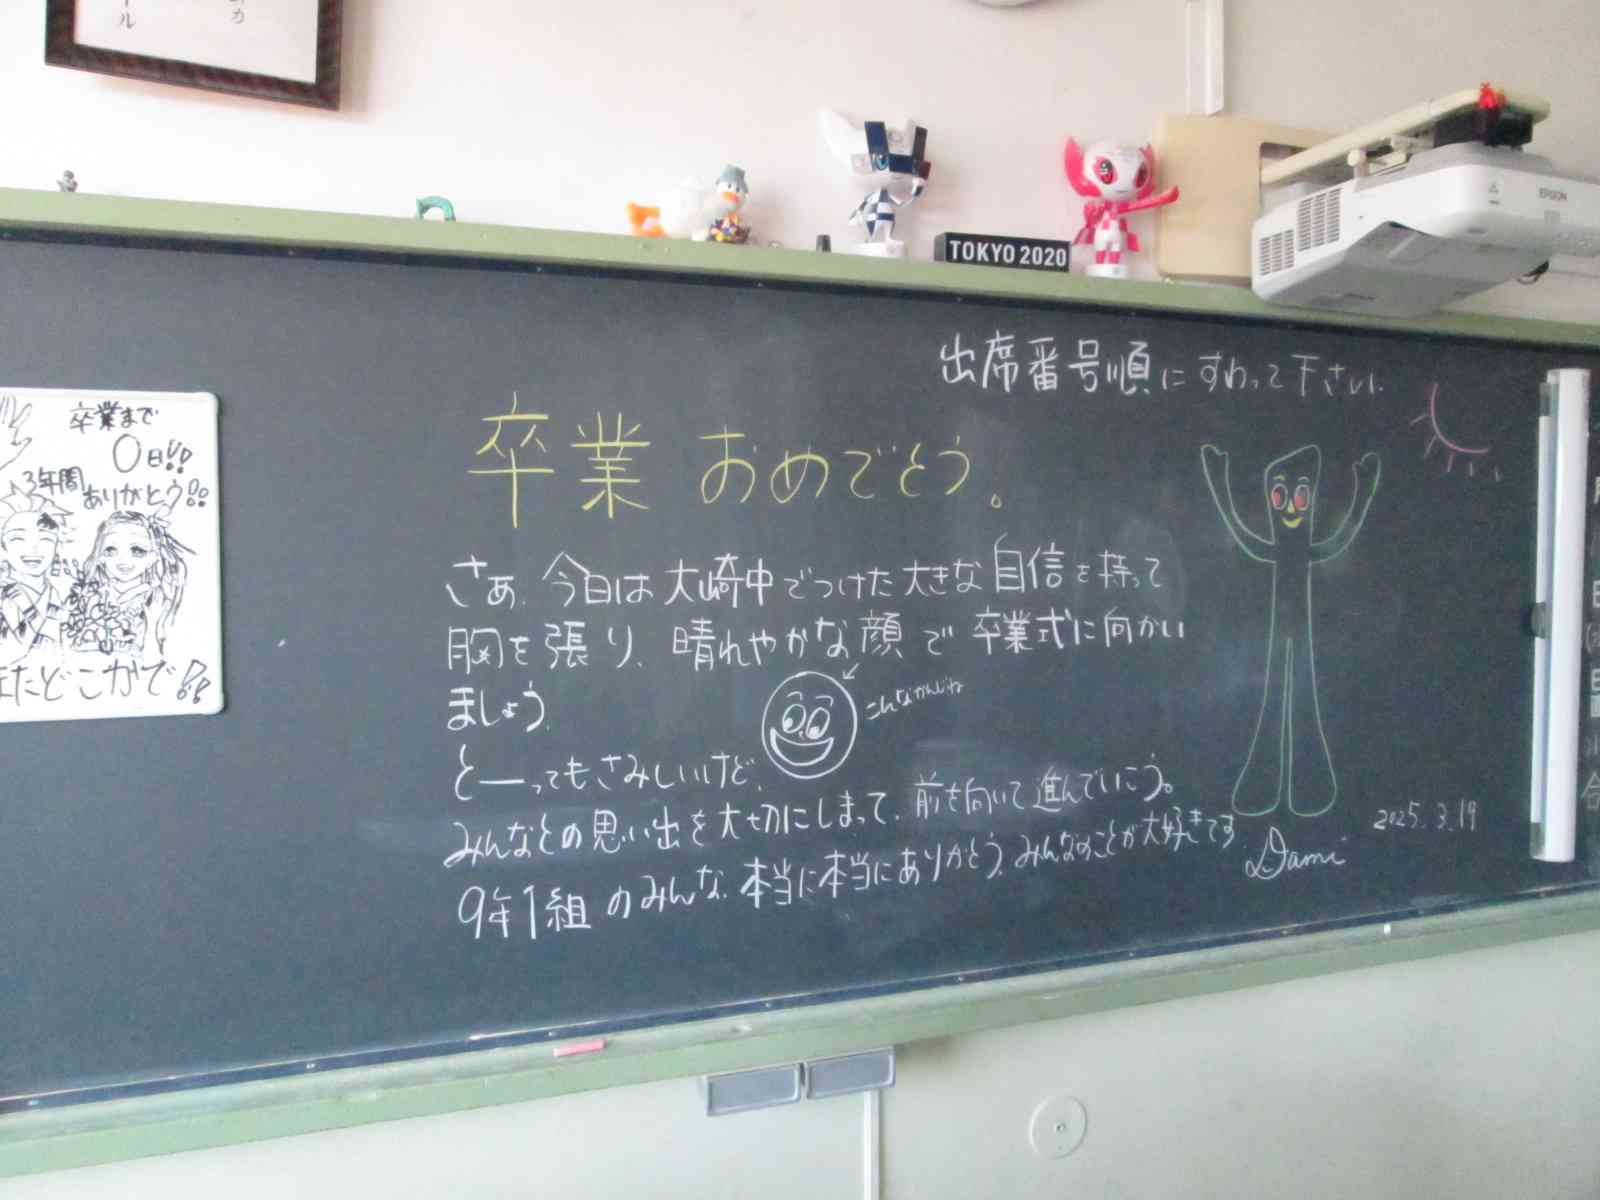 カ
ール
TOKYO 2020
EPSON
出席番号順にすわって下さい.
卒業まで
0日!!
3年間
ありがとう!!
またどこかで!!
卒業おめでとう。
さあ、今日は大崎中でつけた大きな自信を持って
胸を張り、晴れやかな顔で卒業式に向かい
ましょう。
こんなかんじね
とーってもさみしいけど、
みんなとの思い出を大切にしまって、前を向いて進んでいこう。
9年1組のみんな、本当に本当にありがとう。みんなのことが大好きです
Dami
2025.3.19